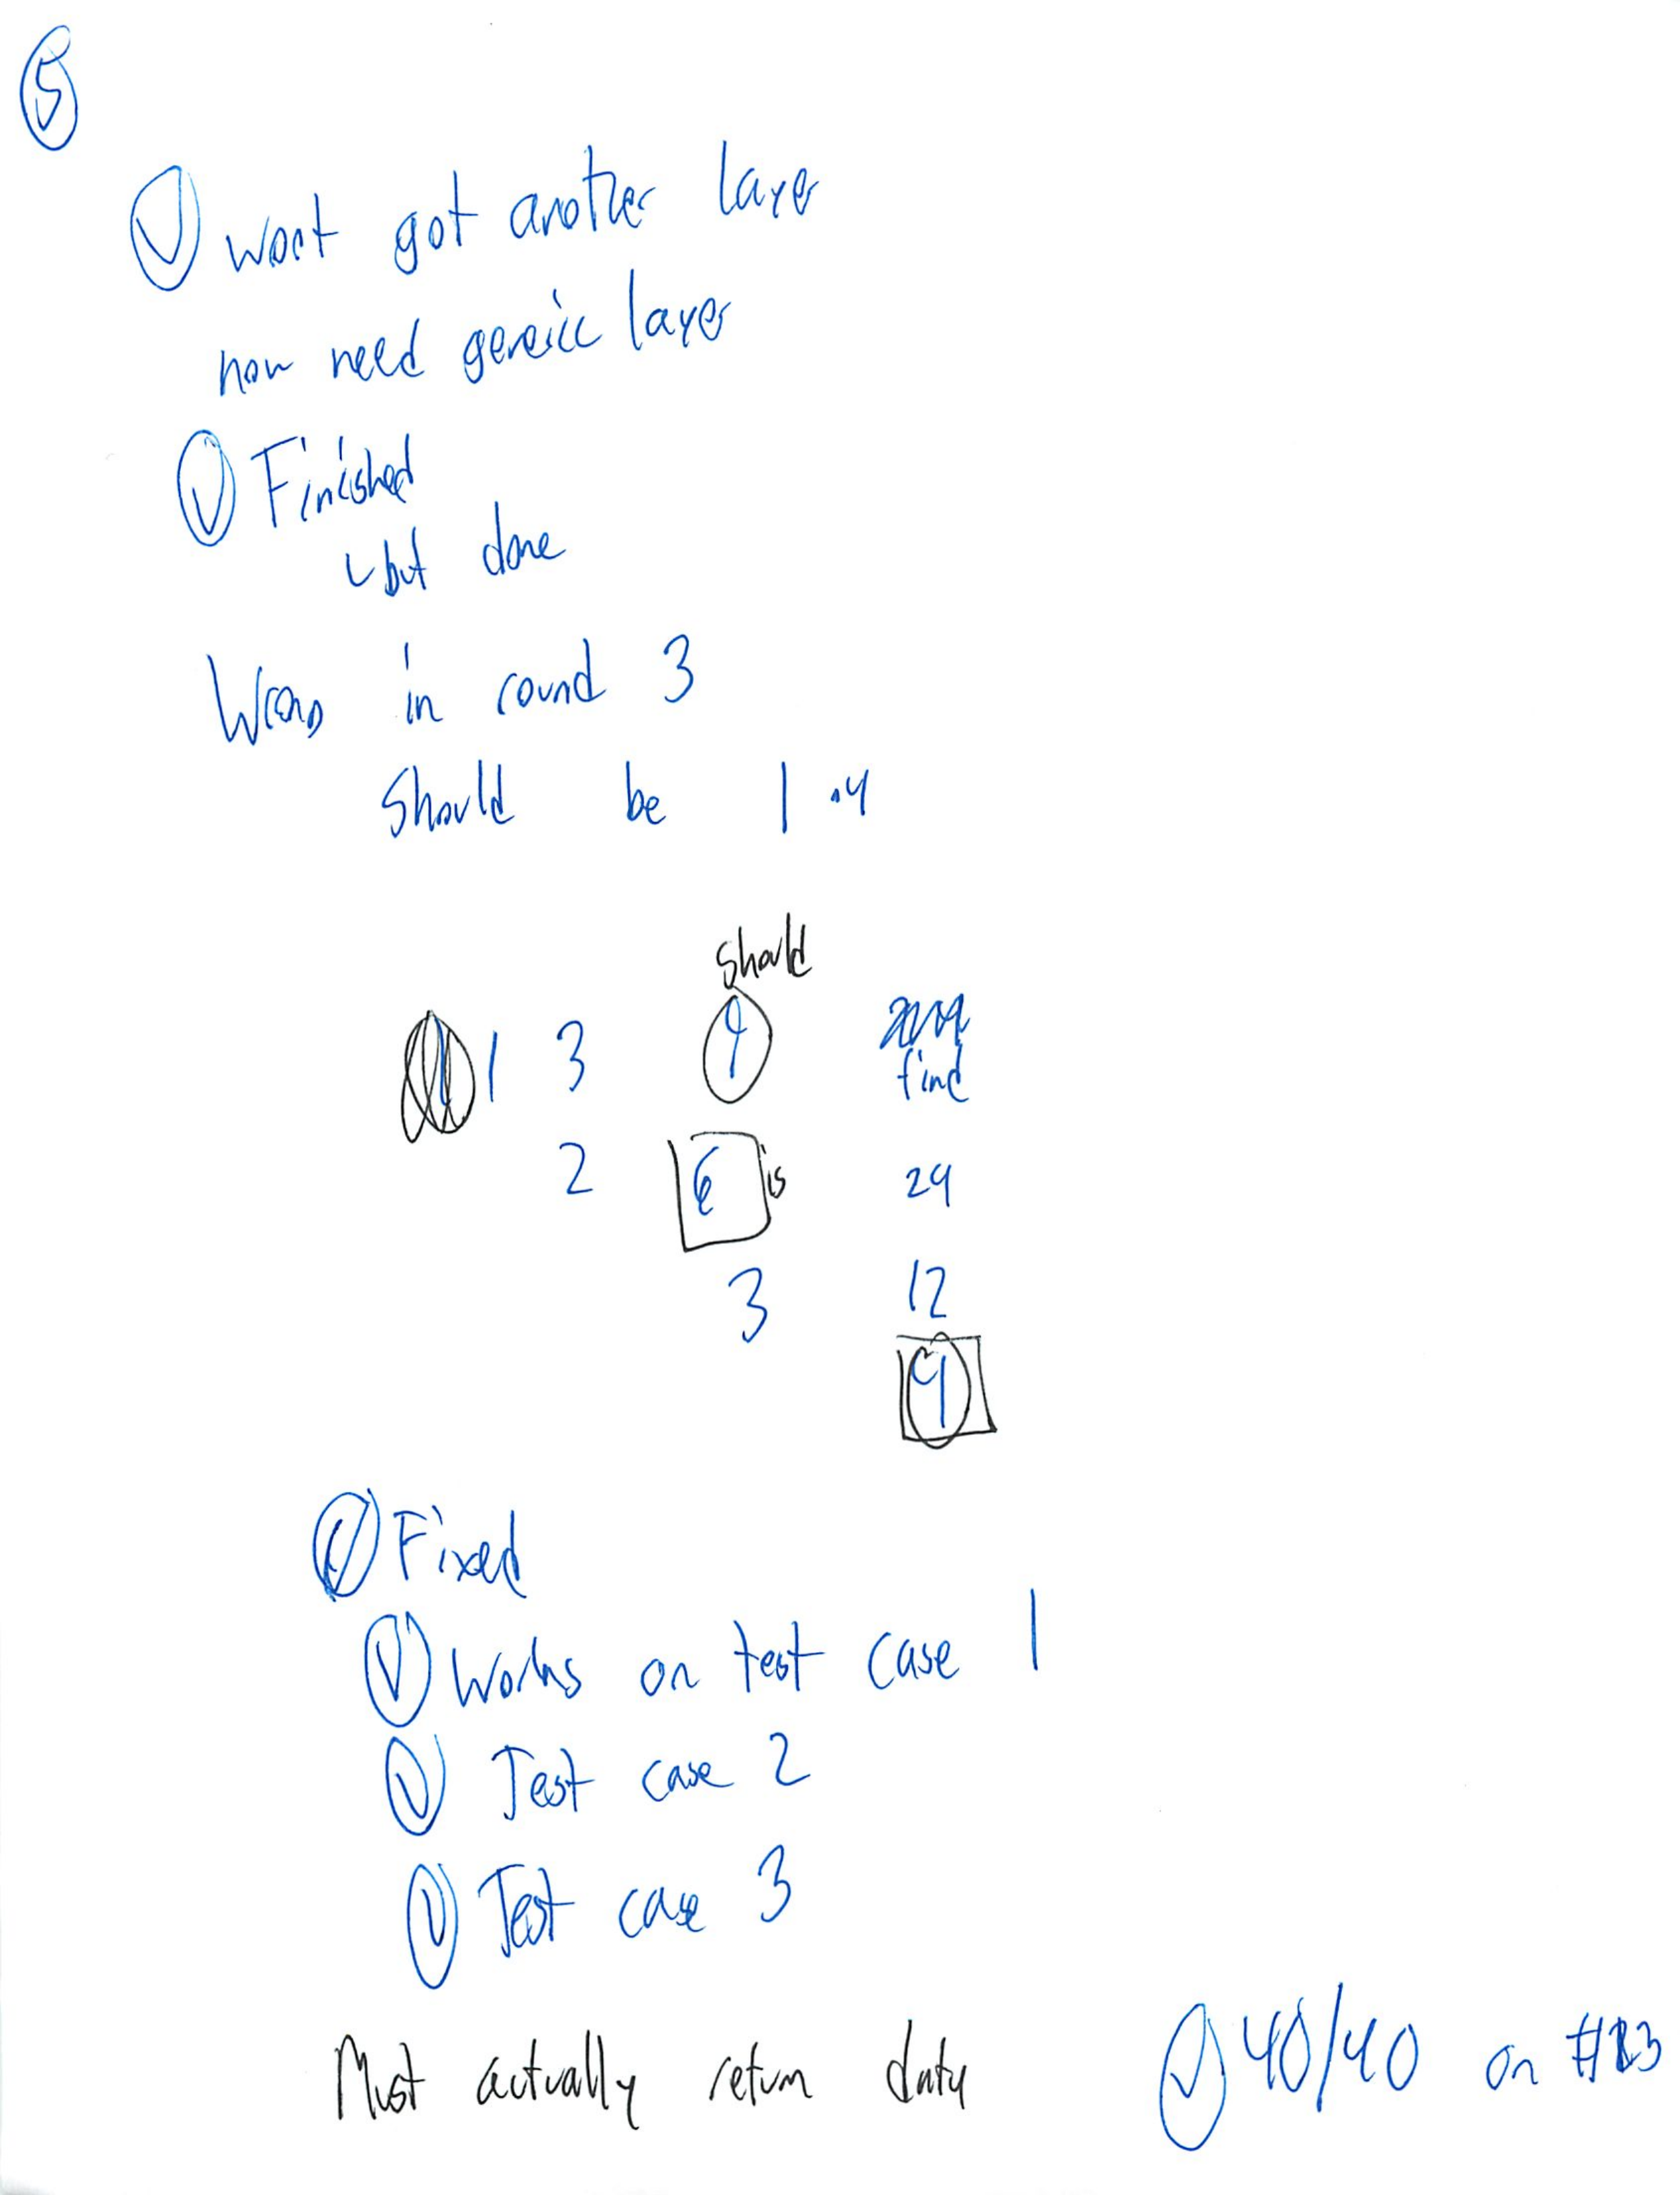 5
✓ want got another layer
now need generic layer
✓ Finished
but done
Wrong in round 3
should be 1 → 4
should
1 3 4
find
2 6 is 24
3 12
4
✓ Fixed
✓ Works on test case 1
✓ Test case 2
✓ Test case 3
Must actually return data ✓ 40/40 on #